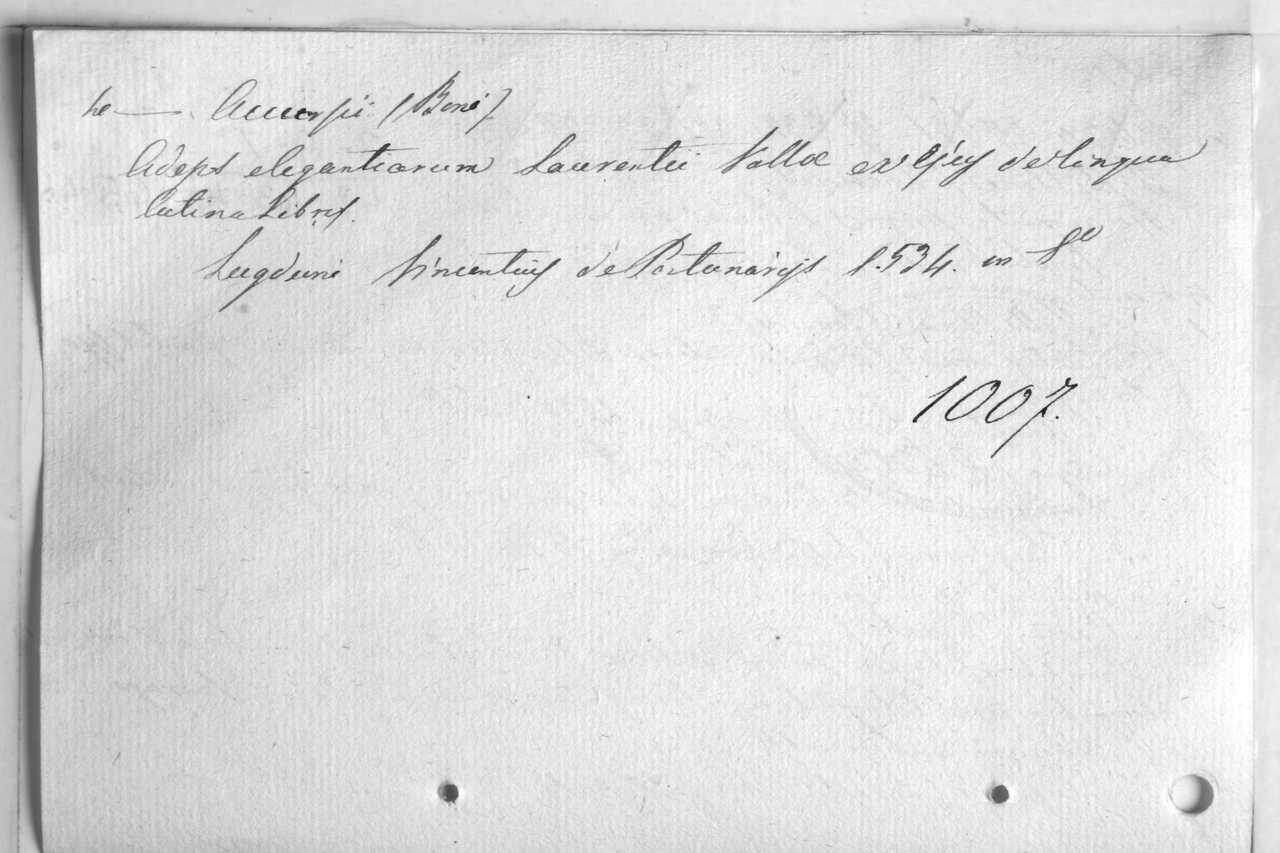 he — Accursii (Boni)
Adeps elegantiarum Laurentii Vallæ ex Ejus de Lingua
latina Libris.
Lugduni Vincentius de Portunariis 1.534. in 8º
1007.